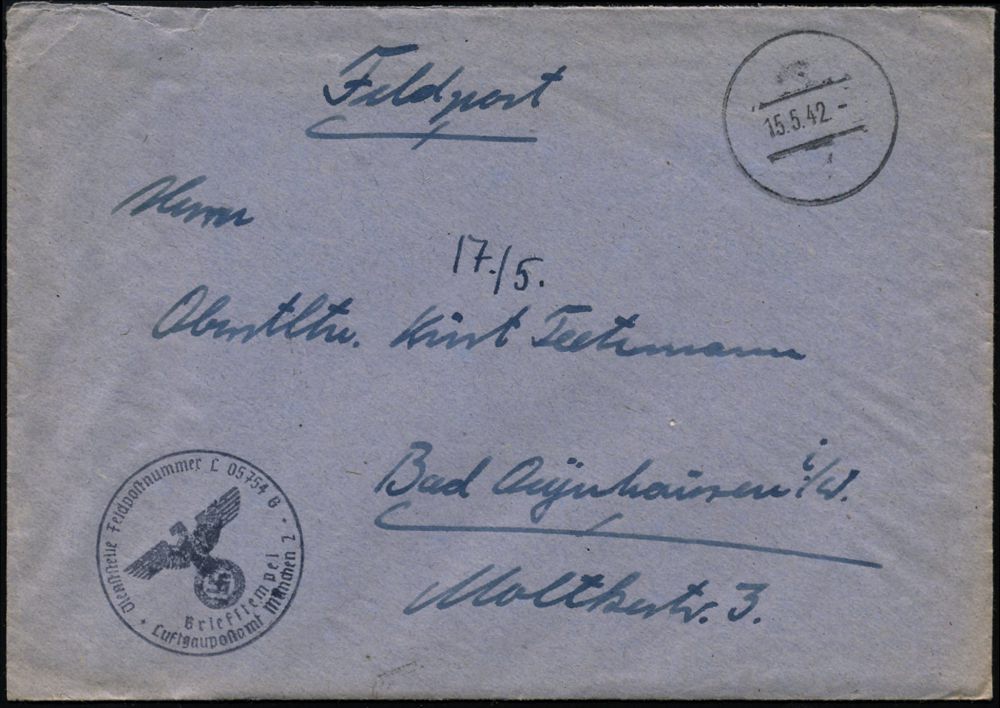 Feldpost
15.5.42 -
Herrn
17./5.
Oberstltn. Kurt Teetzmann
Bad Oeynhausen i/W.
Moltkestr. 3.
Dienststelle Feldpostnummer L 05754 B
Briefstempel
Luftgaupostamt München 2